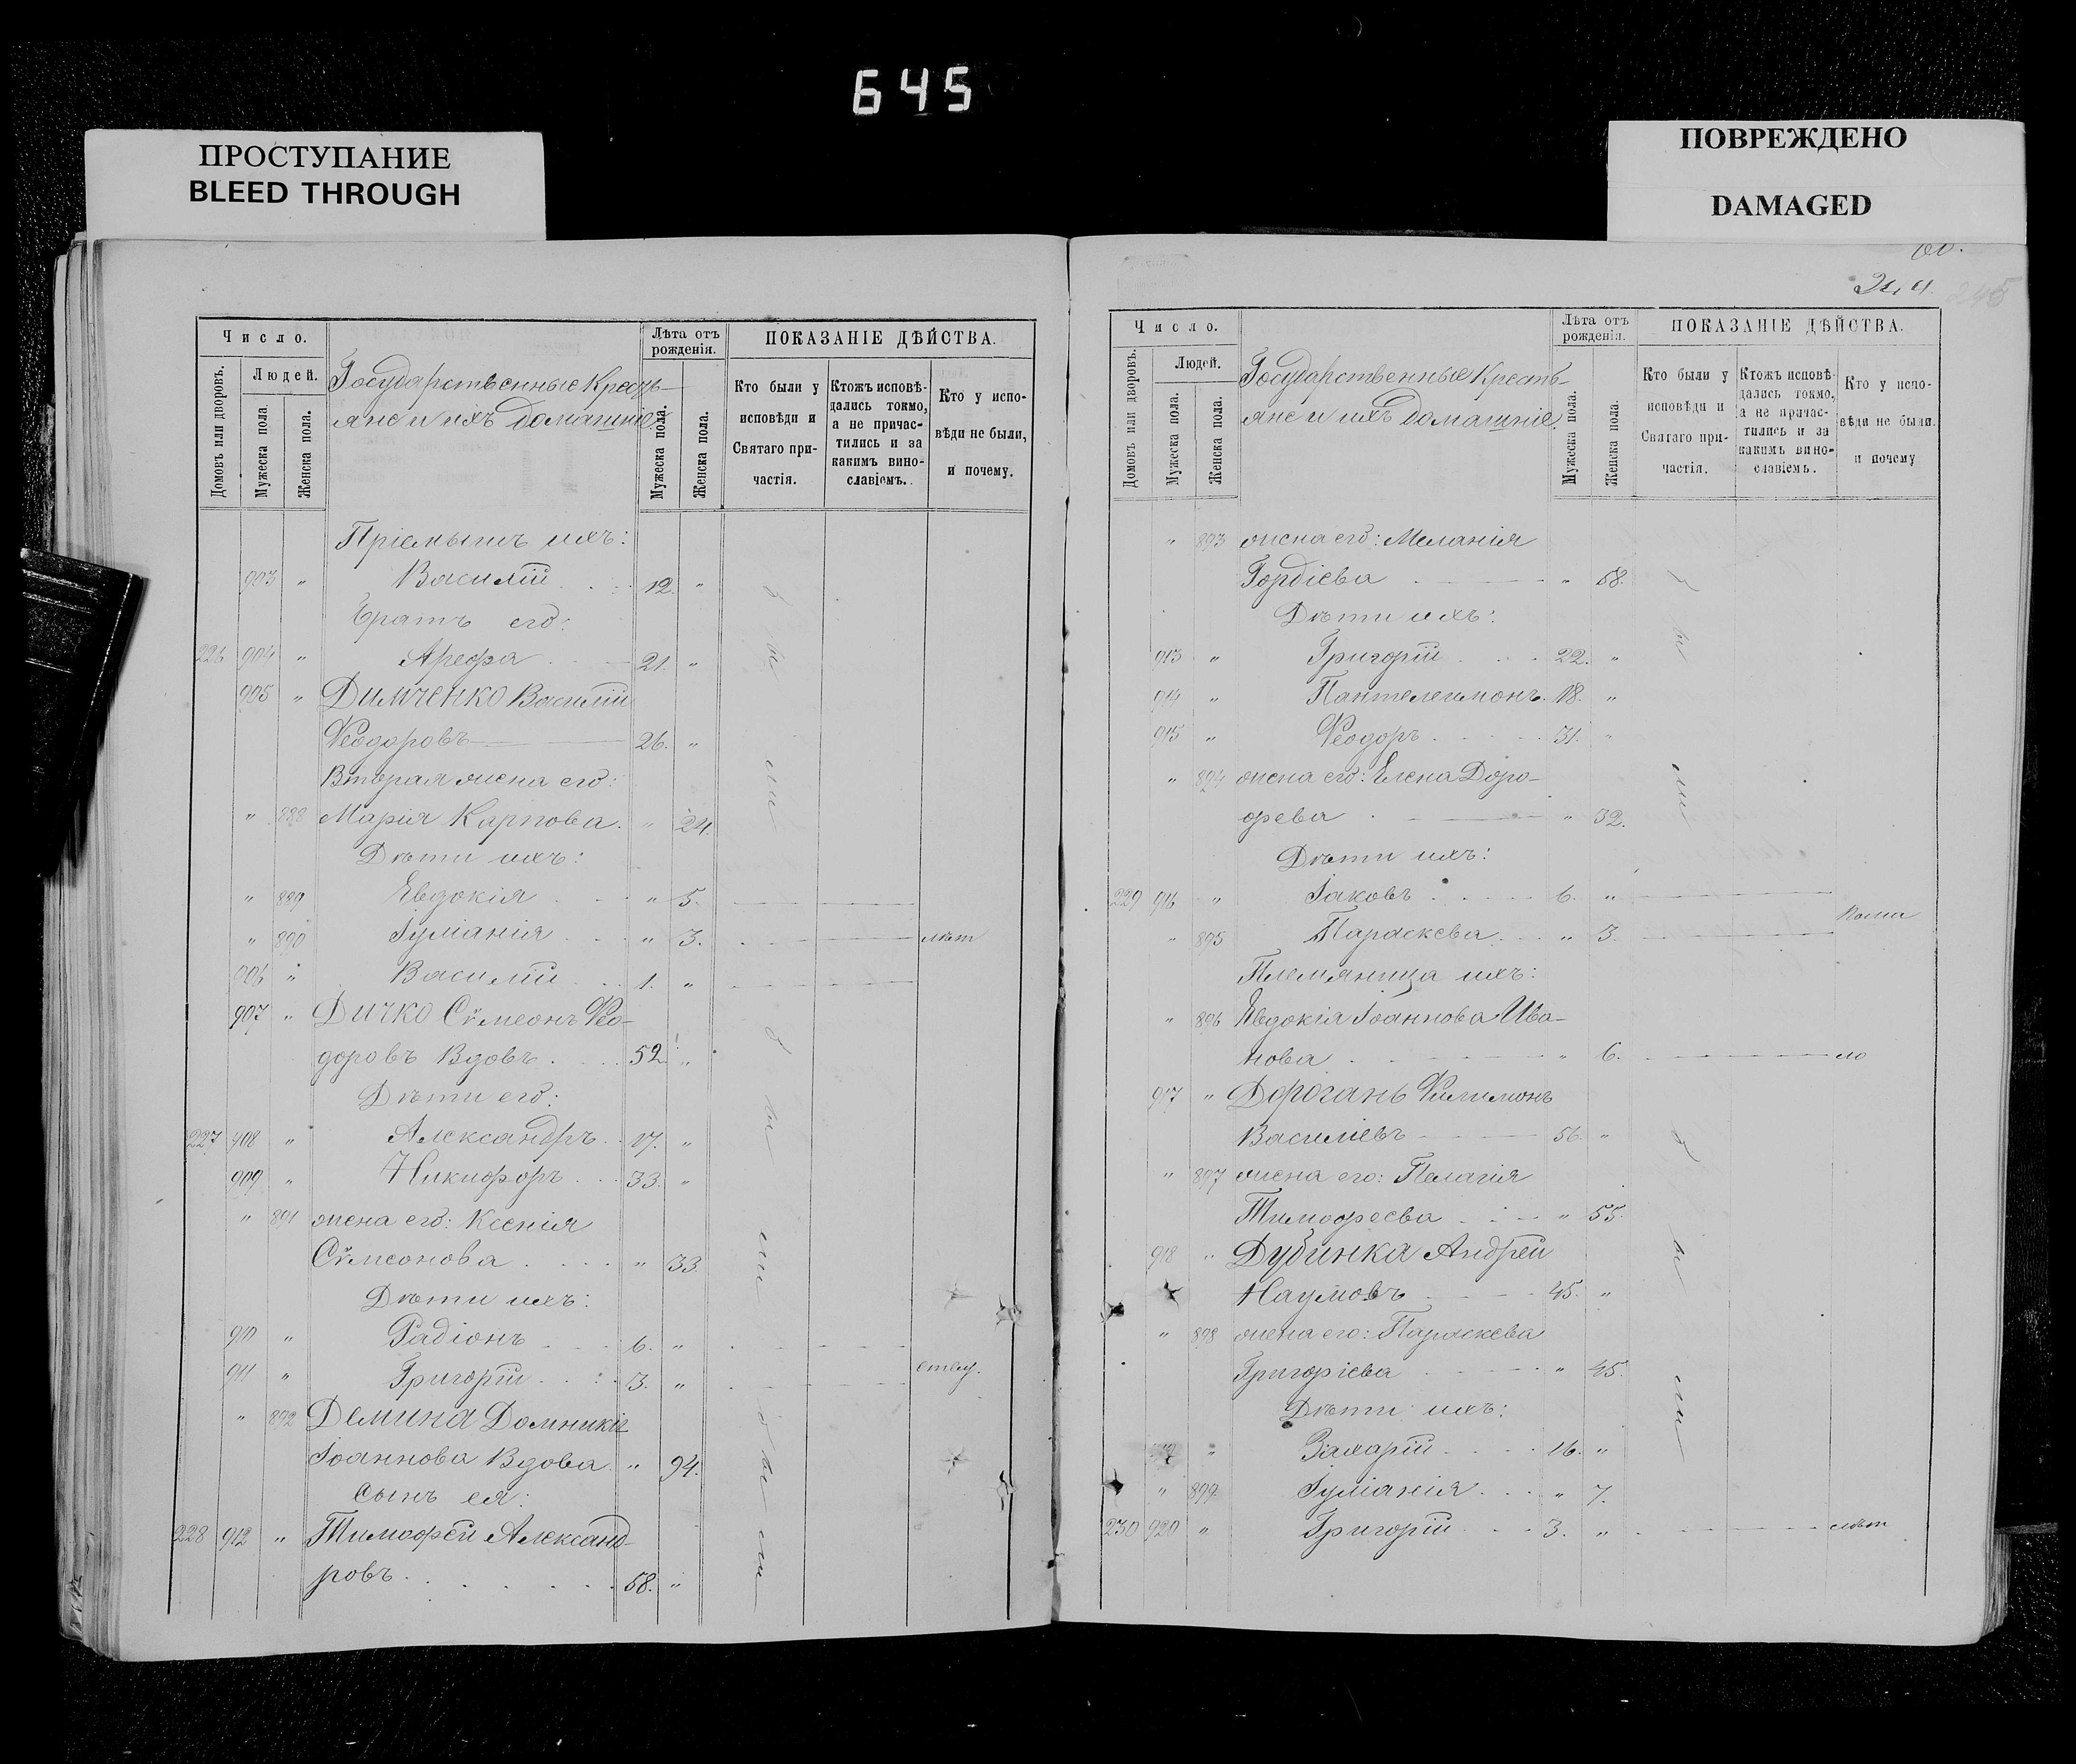 645
ПРОСТУПАНИЕ
BLEED THROUGH
ПОВРЕЖДЕНО
DAMAGED
244.
245
Число.
Домовъ или дворовъ.
Людей.
Мужеска пола.
Женска пола.
Государственные Кресть-
яне и ихъ домашніе.
Лѣта отъ рожденія.
Мужеска пола.
Женска пола.
ПОКАЗАНІЕ ДѢЙСТВА.
Кто были у исповѣди и Святаго при-частія.
Ктожъ исповѣ-дались токмо, а не причас-тились и за какимъ вино-славіемъ.
Кто у испо-вѣди не были, и почему.
Пріемышъ ихъ:
903 " Василій 12. "
Братъ его:
226 904 " Арефа 21. "
905 " Димченко Василій
Ѳеодоровъ 26. "
Вторая жена его:
" 888 Марія Карпова. " 24.
Дѣти ихъ:
" 889 Евдокія " 5.
" 890 Іуліанія " 3.
906 " Василій 1. "
907 " Дичко Сѵмеонъ Ѳео-
доровъ Вдовъ 52 "
Дѣти его:
227 908 " Александръ 17. "
909 " Никифоръ 33. "
" 891 жена его: Ксенія
Сѵмеонова " 33
Дѣти ихъ:
910 " Радіонъ 6. "
911 " Григорій 3. "
" 892 Демина Домникія
Іоаннова Вдова " 94.
Сынъ ея:
228 912 " Тимофей Александ-
ровъ 58. "
Число.
Домовъ или дворовъ.
Людей.
Мужеска пола.
Женска пола.
Государственные Кресть-
яне и ихъ домашніе.
Лѣта отъ рожденія.
Мужеска пола.
Женска пола.
ПОКАЗАНІЕ ДѢЙСТВА.
Кто были у исповѣди и Святаго при-частія.
Ктожъ исповѣ-дались токмо, а не причас-тились и за какимъ вино-славіемъ.
Кто у испо-вѣди не были. и почему
" 893 жена его: Меланія
Гордіева " 58.
Дѣти ихъ:
913 " Григорій 22. "
914 " Пантелеимонъ. 18. "
915 " Ѳеодоръ 31. "
" 894 жена его: Елена Доро-
фева " 32.
Дѣти ихъ:
229 916 " Іаковъ 6. "
" 895 Параскева " 3.
Племяница ихъ:
" 896 Евдокія Іоаннова Ива-
нова " 6.
917 " Дорогань Филимонъ
Василіевъ 56. "
" 897 жена его: Пелагія
Тимофеева " 55.
918 " Дубинка Андрей
Наумовъ 45. "
" 898 жена его: Параскева
Григоріева " 45.
Дѣти ихъ:
" Захарій 16. "
" 899 Іуліанія " 7.
230 920 " Григорій 3. "